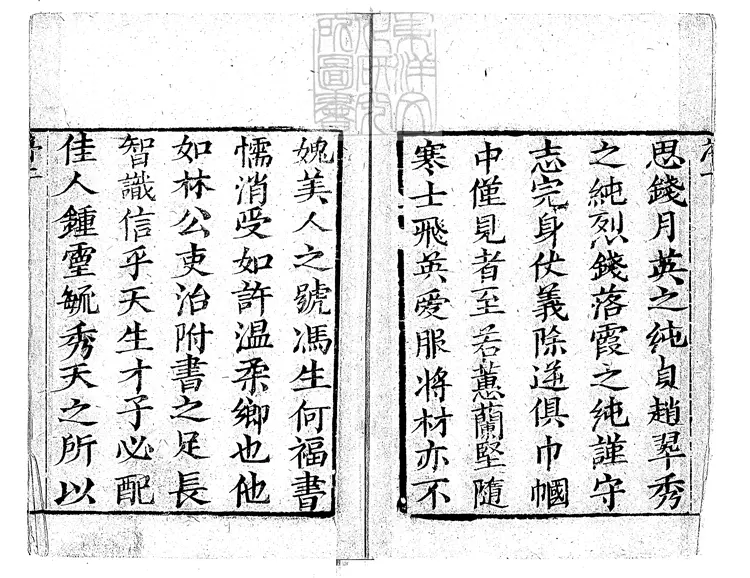 思錢月英之純貞趙翠秀
之純烈錢落霞之純謹守
志完身仗義除逆俱巾幗
中僅見者至若蕙蘭堅隨
寒士飛英愛服將材亦不
媿美人之號馮生何福書
懦消受如許温柔鄉也他
如林公吏治附書之足長
智識信乎天生才子必配
佳人鍾靈毓秀天之所以
序二